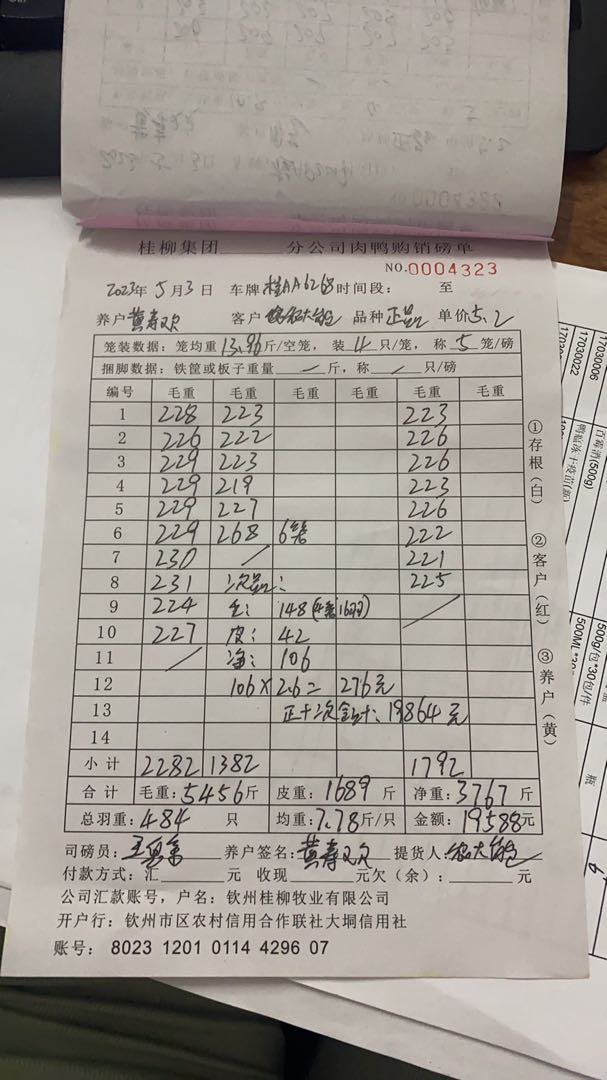 桂柳集团 分公司肉鸭购销磅单
NO.0004323
2023年5月3日 车牌桂AA6268时间段: 至
养户 黄寿欢 客户 品种 正品 单价5.2
笼装数据: 笼均重13.96斤/空笼, 装4只/笼, 称5笼/磅
捆脚数据: 铁筐或板子重量 — 斤, 称 / 只/磅
编号 毛重 毛重 毛重 毛重 毛重 毛重
1 228 223 223
2 226 222 226
3 229 223 226
4 229 219 223
5 229 227 226
6 229 268 6笼 222
7 230 / 221
8 231 次品: 225
9 224 毛: 148 (4笼16羽) /
10 227 皮: 42
11 / 净: 106
12 106×2.6= 276元
13 正+次合计: 19864元
14
小计 2282 1382 1792
合计 毛重:5456斤 皮重:1689斤 净重:3767斤
总羽重:484 只 均重:7.78斤/只 金额:19588元
司磅员: 养户签名:黄寿欢 提货人:
付款方式: 汇 元 收现 元欠(余): 元
公司汇款账号, 户名: 钦州桂柳牧业有限公司
开户行: 钦州市区农村信用合作联社大垌信用社
账号: 8023 1201 0114 4296 07
①存根(白) ②客户(红) ③养户(黄)
17030006
17030022
500g/包*30包/件
瓶